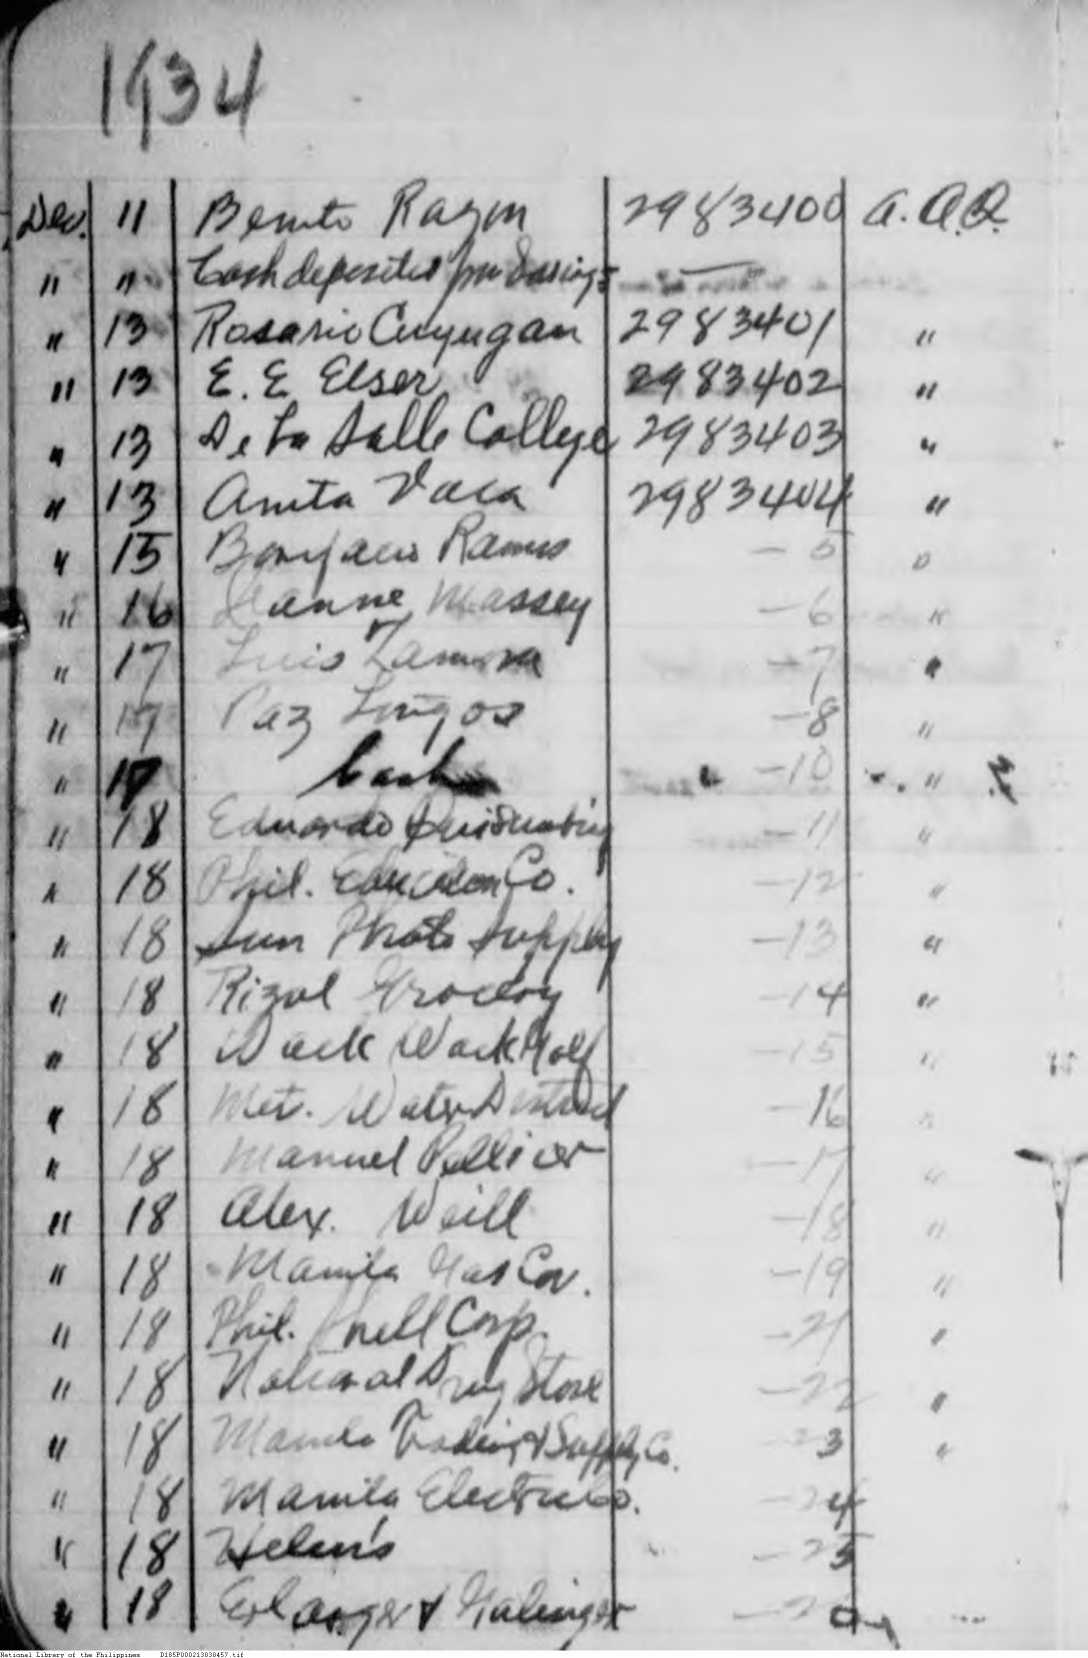 1934
Dec. 11 Benito Razon 2983400 A.A.Q.
" " Cash deposited from Savings —
" 13 Rosario Cuyugan 2983401 "
" 13 E. E Elser 2983402 "
" 13 De La Salle College 2983403 "
" 13 Anita Vaca 2983404 "
" 15 Bonifacio Ramos - 5 "
" 16 Jeanne Massey - 6 "
" 17 Luis Zamora - 7 "
" 17 Paz Longos - 8 "
" 17 Cash - 10 "
" 18 Eduardo Quisumbing - 11 "
" 18 Phil. Education Co. - 12 "
" 18 Sun Photo Supply - 13 "
" 18 Rizal Grocery - 14 "
" 18 Wack Wack Golf - 15 "
" 18 Met. Water District - 16 "
" 18 Manuel Pellicer - 17 "
" 18 Alex. Weill - 18 "
" 18 Manila Gas Cor. - 19 "
" 18 Phil. Shell Corp. - 21 "
" 18 National Drug Store - 22 "
" 18 Manila Trading & Supply Co. 23 "
" 18 Manila Electric Co. - 24
" 18 Helen's - 25
" 18 Erlanger & Galinger
National Library of the Philippines D185P000213838457.tif